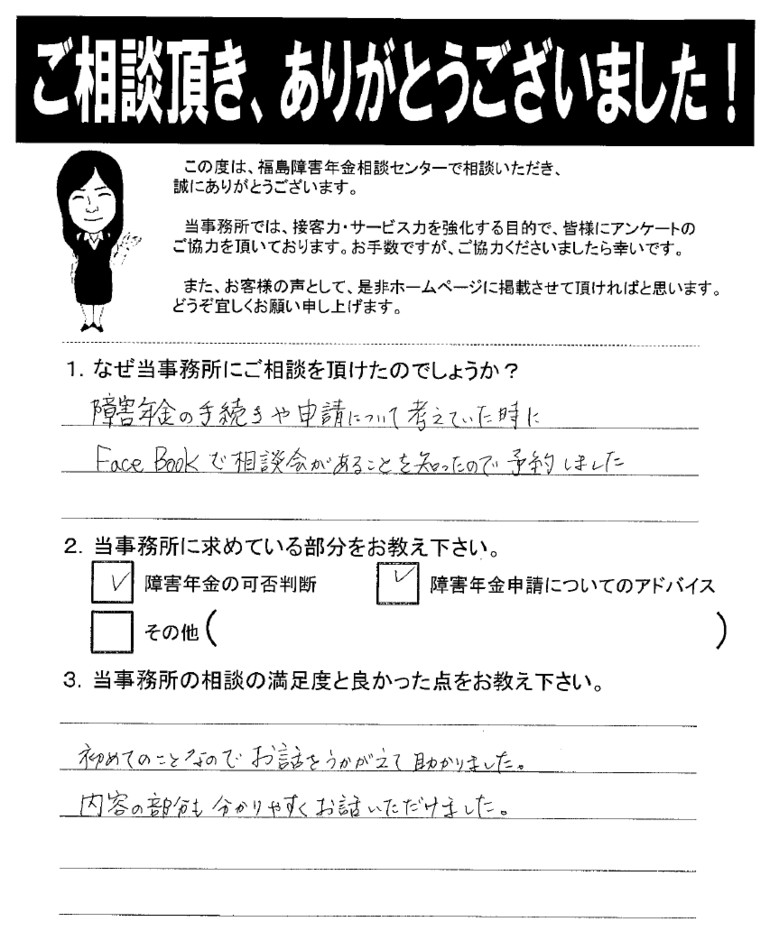 ご相談頂き、ありがとうございました！
この度は、福島障害年金相談センターで相談いただき、
誠にありがとうございます。
当事務所では、接客力・サービス力を強化する目的で、皆様にアンケートの
ご協力を頂いております。お手数ですが、ご協力くださいましたら幸いです。
また、お客様の声として、是非ホームページに掲載させて頂ければと思います。
どうぞ宜しくお願い申し上げます。
1. なぜ当事務所にご相談を頂けたのでしょうか？
障害年金の手続きや申請について考えていた時に
Face Bookで相談会があることを知ったので予約しました
2. 当事務所に求めている部分をお教え下さい。
障害年金の可否判断 障害年金申請についてのアドバイス
その他（ ）
3. 当事務所の相談の満足度と良かった点をお教え下さい。
初めてのことなのでお話をうかがえて助かりました。
内容の部分も分かりやすくお話いただけました。